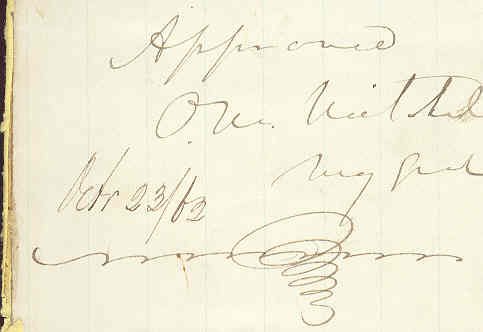 Approved
O. M. Mitchel
Maj Genl
Octr 23/62